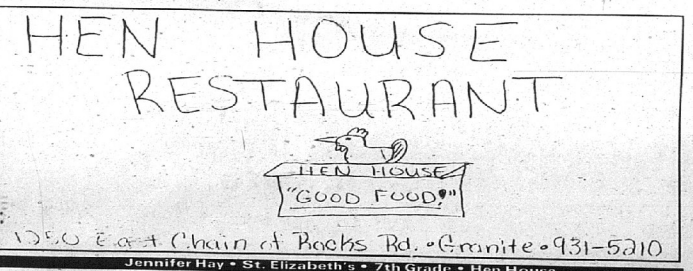 HEN HOUSE
RESTAURANT
HEN HOUSE
"GOOD FOOD!"
1250 East Chain of Rocks Rd. • Granite • 931-5210
Jennifer Hay • St. Elizabeth's • 7th Grade • Hen House